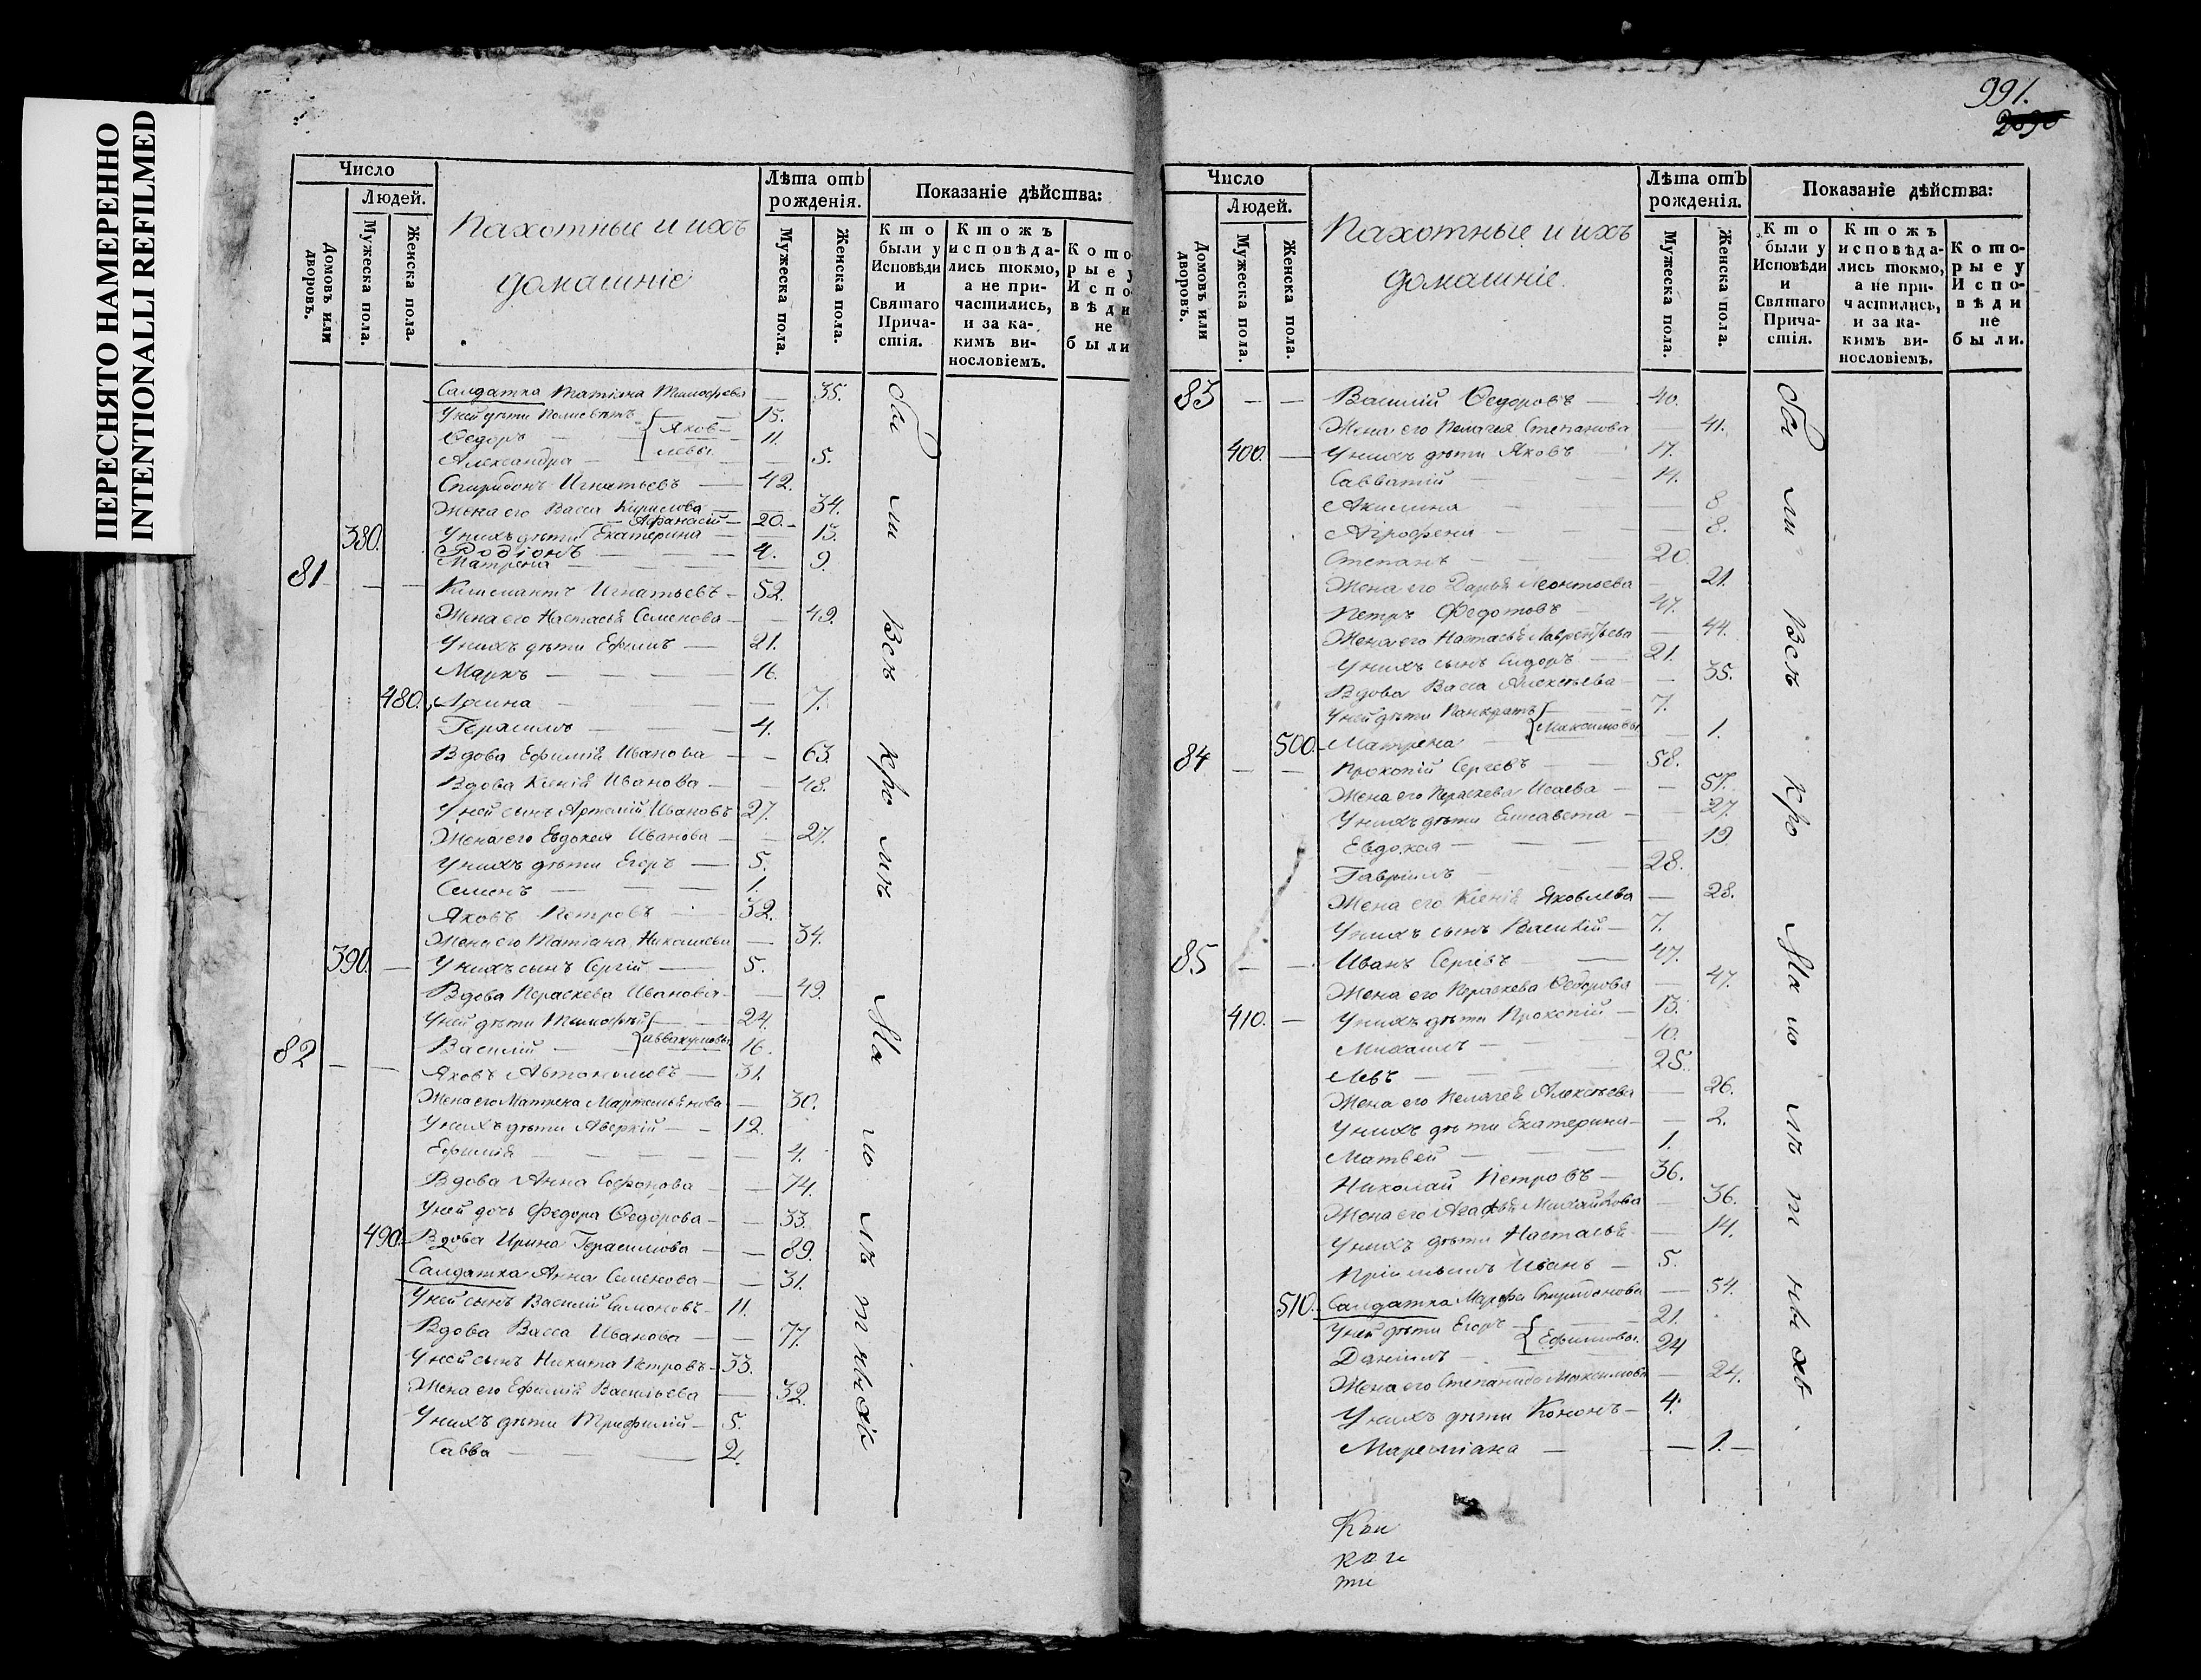 ПЕРЕСНЯТО НАМЕРЕННО
INTENTIONALLI REFILMED
Число
Людей.
Домовъ или дворовъ.
Мужеска пола.
Женска пола.
Пахотные и ихъ
домашніе
Лѣта отъ рожденія.
Мужеска пола.
Женска пола.
Показаніе дѣйства:
Кто были у Исповѣди и Святаго Причастія.
Ктожъ исповѣдались токмо, а не причастились, и за какимъ винословіемъ.
Которые у Исповѣди не были
Салдатка Татіана Тимофѣева — 35.
У ней дѣти — 15.
Ѳедоръ { Яковлевы 11.
Александра — 5.
Спиридонъ Игнатьевъ — 42.
Жена его Васса Кирилова — 34.
Афанасій — 20.
380. У нихъ дѣти Екатерина — 13.
Родіонъ — 4.
Матрена — 9.
81 — — Климантъ Игнатьевъ — 52.
Жена его Настасья Семенова — 49.
У нихъ дѣти Ефимъ — 21.
Маркъ — 16.
480. — 7.
Герасимъ — 4.
Вдова Ефимія Иванова — 63.
Вдова Ксенія Иванова — 48.
У ней сынъ Артемій Ивановъ 27.
Жена его Евдокея Иванова — 27.
У нихъ дѣти Егоръ — 5.
Семенъ — 1.
Яковъ Петровъ — 32.
Жена его Татіана — 34.
390. — У нихъ сынъ Сергій — 5.
Вдова Параскева Иванова — 49.
У ней дѣти Тимофѣй { 24.
Василій — Аввакумовы 16.
82 — — Яковъ Автономовъ — 31.
Жена его Матрена Мартемьянова — 30.
У нихъ дѣти Аверкій — 12.
Ефимія — 4.
Вдова Анна Софонова — 74.
У ней дочь Федора Ѳедорова — 33.
490. Вдова Ирина Герасимова — 89.
Салдатка Анна Семенова — 31.
У ней сынъ Василій Симоновъ — 11.
Вдова Васса Иванова — 77.
У ней сынъ Никита Петровъ — 33.
Жена его Ефимія Васильева — 32.
У нихъ дѣти Трифилій — 5.
Савва — 2.
Бы
ли
Всѣ
кро
мѣ
Ма
ло
лѣ
т
ныхъ
991.
Число
Людей.
Домовъ или дворовъ.
Мужеска пола.
Женска пола.
Пахотные и ихъ
домашніе.
Лѣта отъ рожденія.
Мужеска пола.
Женска пола.
Показаніе дѣйства:
Кто были у Исповѣди и Святаго Причастія.
Ктожъ исповѣдались токмо, а не причастились, и за какимъ винословіемъ.
Которые у Исповѣди не были.
83 — — Василій Ѳедоровъ — 40.
Жена его Пелагея Степанова — 41.
400. — У нихъ дѣти Яковъ — 17.
Савватій — 14.
Акилина — 8
Агрофена — 8.
Степанъ — 20.
Жена его Дарья Леонтьева — 21.
Петръ Федотовъ — 47.
Жена его Настасья Лаврентьева — 44.
У нихъ сынъ Сидоръ — 21.
Вдова Васса Алексѣева — 35.
У ней дѣти Панкратъ { 7.
500. Матрена — Максимовы — 1.
84 — — Прокопій Сергѣевъ — 58.
Жена его Параскева Исаева — 57.
У нихъ дѣти Елисавета — 27.
Евдокея — 19.
Гавріилъ — 28.
Жена его Ксенія Яковлева — 28.
У нихъ сынъ Василій — 7.
85 — — Иванъ Сергѣевъ — 47.
Жена его Параскева Ѳедорова — 47.
410. — У нихъ дѣти Прокопій — 13.
Михаилъ — 10.
Левъ — 25.
Жена его Пелагея Алексѣева — 26.
У нихъ дѣти Екатерина — 2.
Матвей — 1.
Николай Петровъ — 36.
Жена его Агафья Михайлова — 36.
У нихъ дѣти Настасья — 14.
Пріемышъ Иванъ — 5.
510. Салдатка Марфа Спиридонова — 54.
У ней дѣти Егоръ { 21.
Даніилъ — Ефимовы 24
Жена его Степанида Максимова — 24.
У нихъ дѣти Кононъ — 4.
Мареміана — 1. —
Бы
ли
Всѣ
кро
мѣ
Ма
ло
лѣ
т
ныхъ